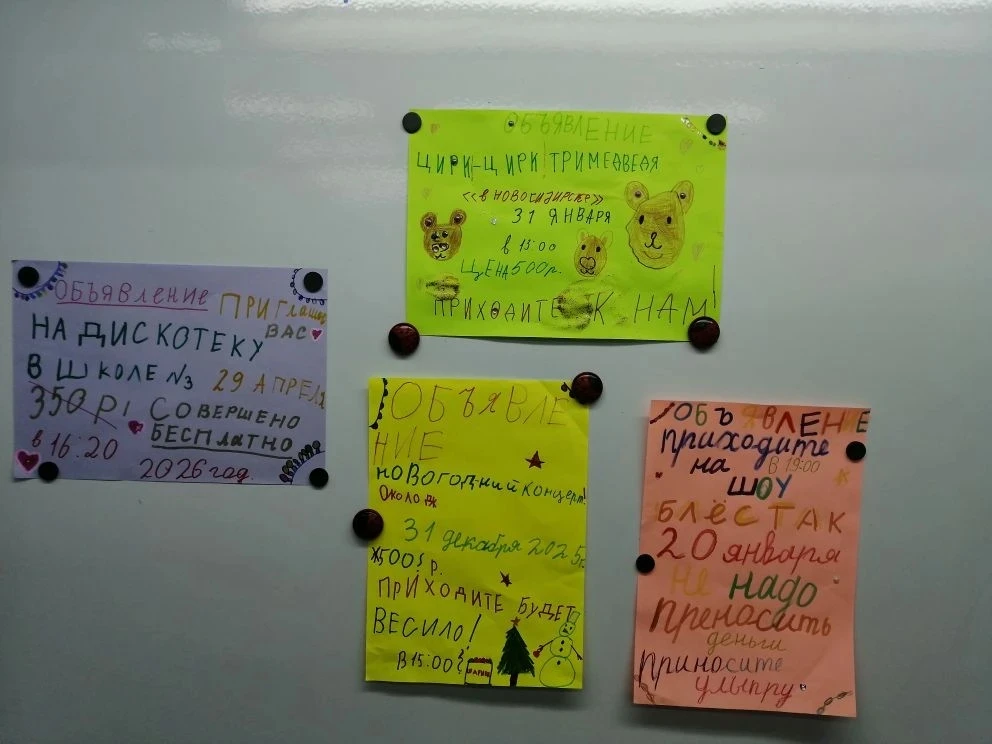 ОБЪЯВЛЕНИЕ
ЦИРК-ЦИРК! ТРИ МЕДВЕДЯ
«В НОВОСИБИРСКЕ»
31 ЯНВАРЯ
в 13:00
ЦЕНА 500р.
ПРИХОДИТЕ К НАМ!
ОБЪЯВЛЕНИЕ
ПРИГлашаем
ВАС
НА ДИСКОТЕКУ
В ШКОЛЕ №3 29 АПРЕЛЯ
350 Р! СОВЕРШЕНО
БЕСПлатно
в 16:20
2026 год.
ОБЪЯВЛЕ
НИЕ
НОВОГОДНИЙ КОНЦЕРТ!
ОКОЛО ДК
31 декабря 2025г.
500 р.
ПРИХОДИТЕ БУДЕТ
ВЕСИЛО!
В 15:00
ОБЪЯВЛЕНИЕ
приходите
на В 19:00
ШОУ
БЛЁСТАК
20 января
Не надо
Преносить
деньги
приносите
улыпру